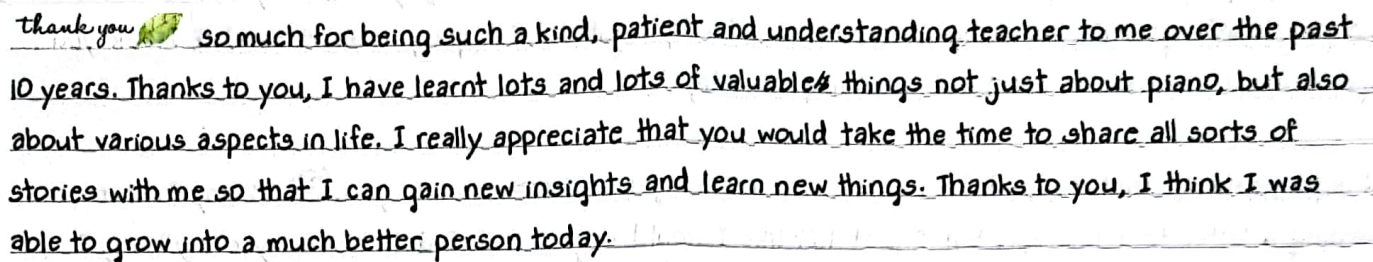 thank you so much for being such a kind, patient and understanding teacher to me over the past
10 years. Thanks to you, I have learnt lots and lots of valuable things not just about piano, but also
about various aspects in life. I really appreciate that you would take the time to share all sorts of
stories with me so that I can gain new insights and learn new things. Thanks to you, I think I was
able to grow into a much better person today.